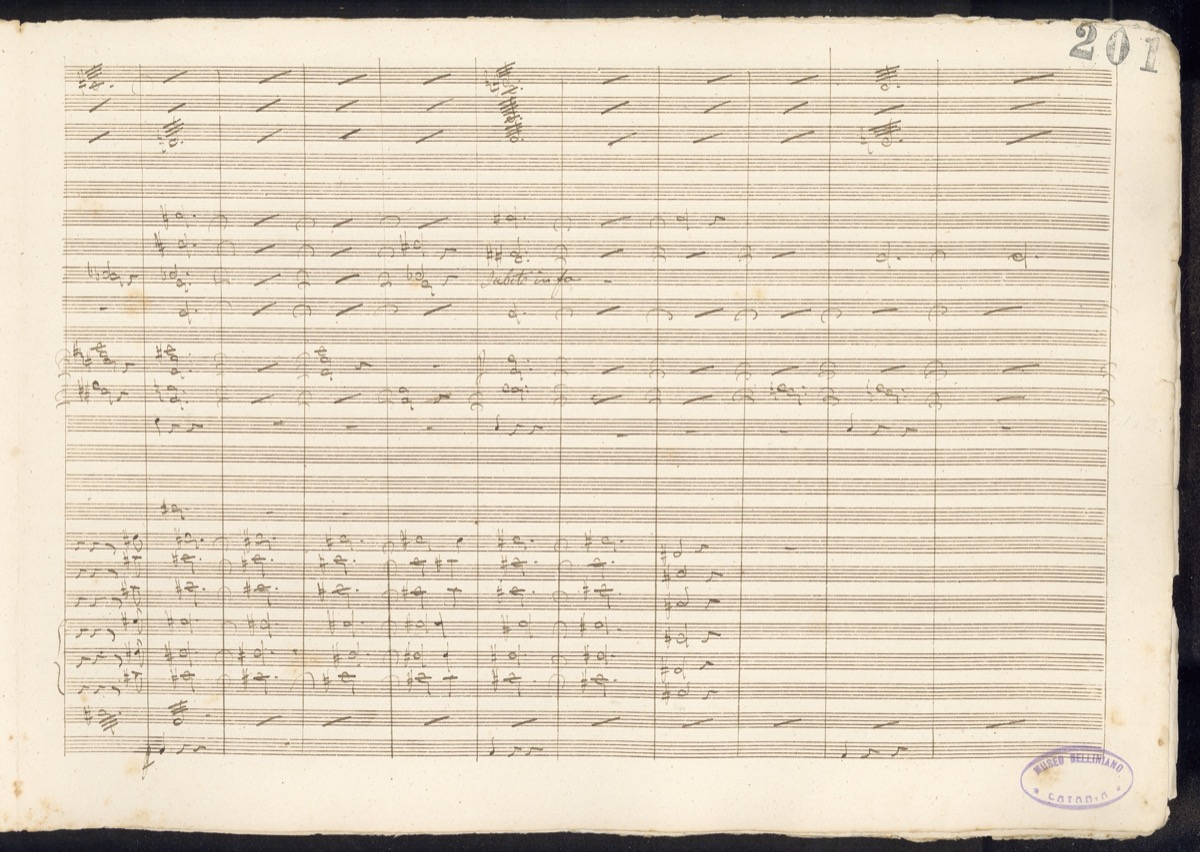 201
Subito in fa
MUSEO BELLINIANO
CATANIA